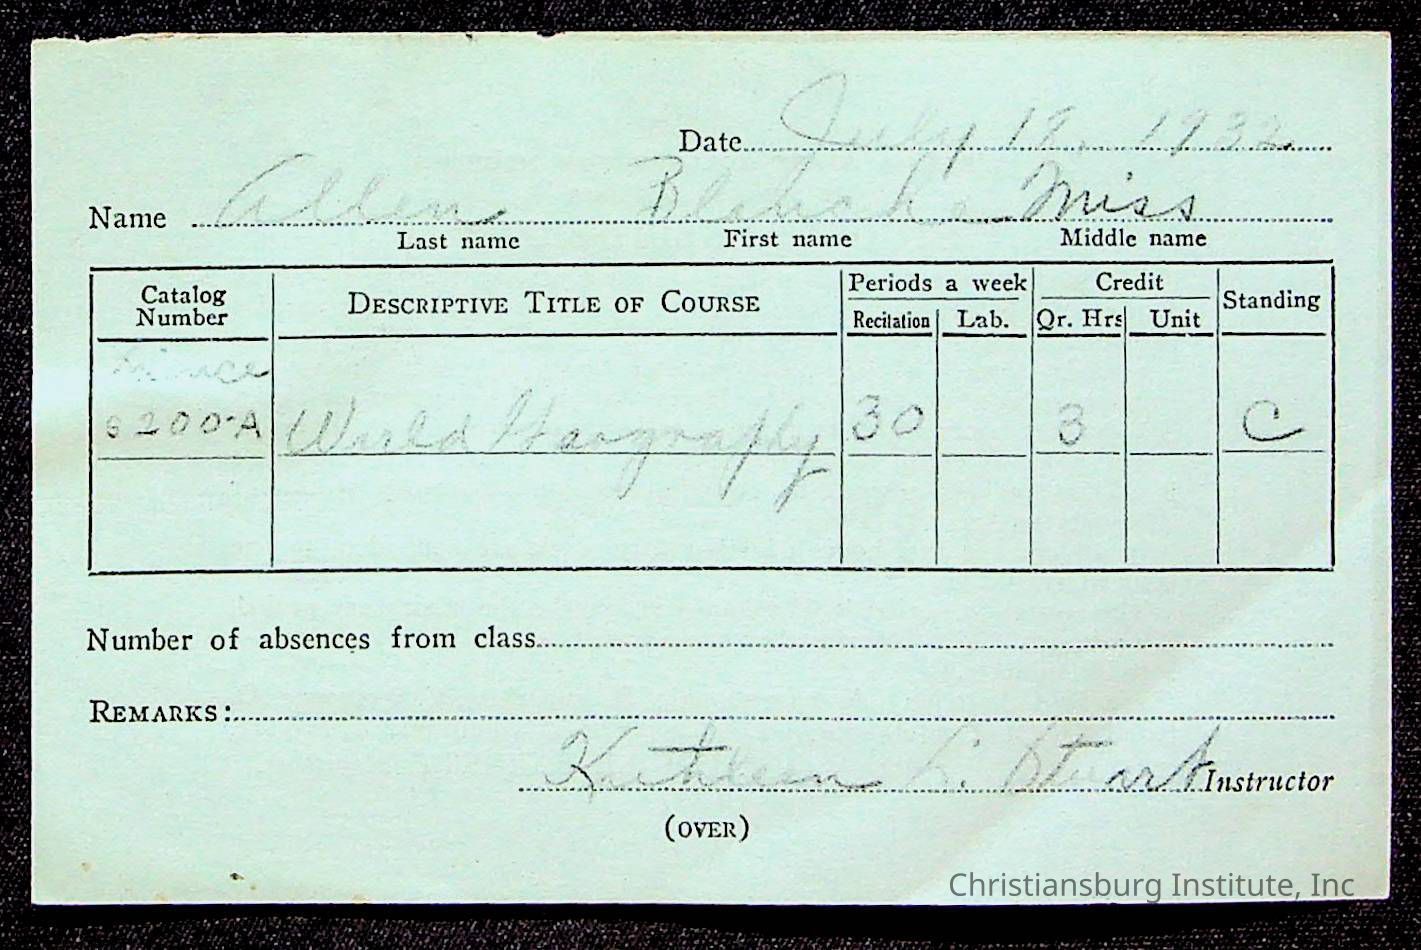 Date July 12, 1932
Name Allen Blanche Miss
Last name First name Middle name
Catalog Number DESCRIPTIVE TITLE OF COURSE Periods a week Credit Standing
Recitation Lab. Qr. Hrs Unit
S200-A World Geography 30 3 C
Number of absences from class
REMARKS:
Kathleen L. Stuart Instructor
(OVER)
Christiansburg Institute, Inc